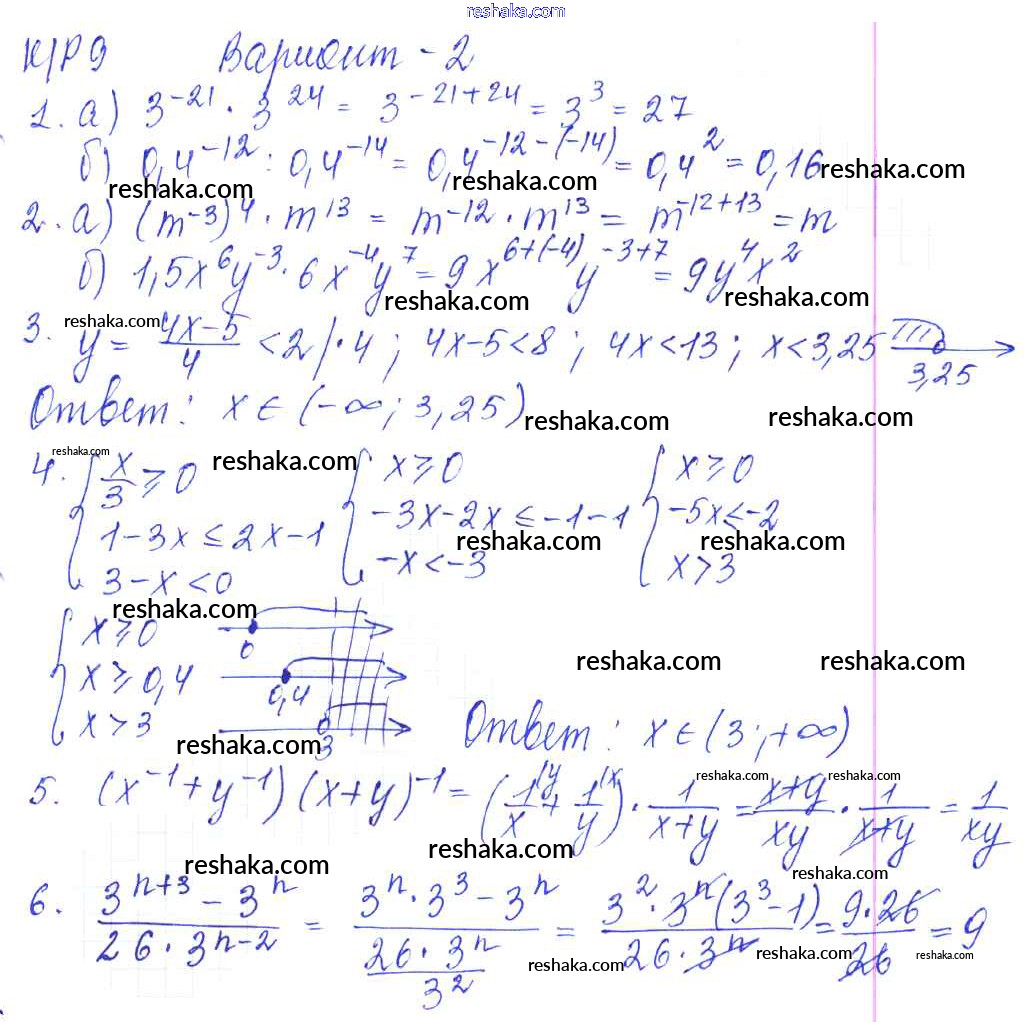 reshaka.com
К/Р 9 Вариант - 2
1. а) 3^{-21} · 3^{24} = 3^{-21+24} = 3^3 = 27
б) 0,4^{-12} : 0,4^{-14} = 0,4^{-12-(-14)} = 0,4^2 = 0,16
reshaka.com reshaka.com reshaka.com
2. а) (m^{-3})^4 · m^{13} = m^{-12} · m^{13} = m^{-12+13} = m
б) 1,5x^6y^{-3} · 6x^{-4}y^7 = 9x^{6+(-4)}y^{-3+7} = 9y^4x^2
reshaka.com reshaka.com
reshaka.com
3. y = \frac{4x-5}{4} < 2 | · 4 ; 4x-5<8 ; 4x<13 ; x<3,25
3,25
Ответ : x ∈ (-∞; 3,25)
reshaka.com reshaka.com
reshaka.com reshaka.com
4. { \frac{x}{3} ≥ 0 { x ≥ 0 { x ≥ 0
1-3x ≤ 2x-1 -3x-2x ≤ -1-1 -5x ≤ -2
reshaka.com reshaka.com
3-x<0 -x<-3 x>3
reshaka.com
{ x ≥ 0 0
reshaka.com reshaka.com
x ≥ 0,4 0,4
x > 3 3 Ответ : x ∈ (3 ; +∞)
reshaka.com
reshaka.com reshaka.com
5. (x^{-1}+y^{-1})(x+y)^{-1} = (\frac{1}{x}^{(y} + \frac{1}{y}^{(x}) · \frac{1}{x+y} = \frac{x+y}{xy} · \frac{1}{x+y} = \frac{1}{xy}
reshaka.com reshaka.com
reshaka.com
6. \frac{3^{n+3} - 3^n}{26 · 3^{n-2}} = \frac{3^n · 3^3 - 3^n}{\frac{26 · 3^n}{3^2}} = \frac{3^2 · 3^n(3^3-1)}{26 · 3^n} = \frac{9 · 26}{26} = 9
reshaka.com reshaka.com reshaka.com